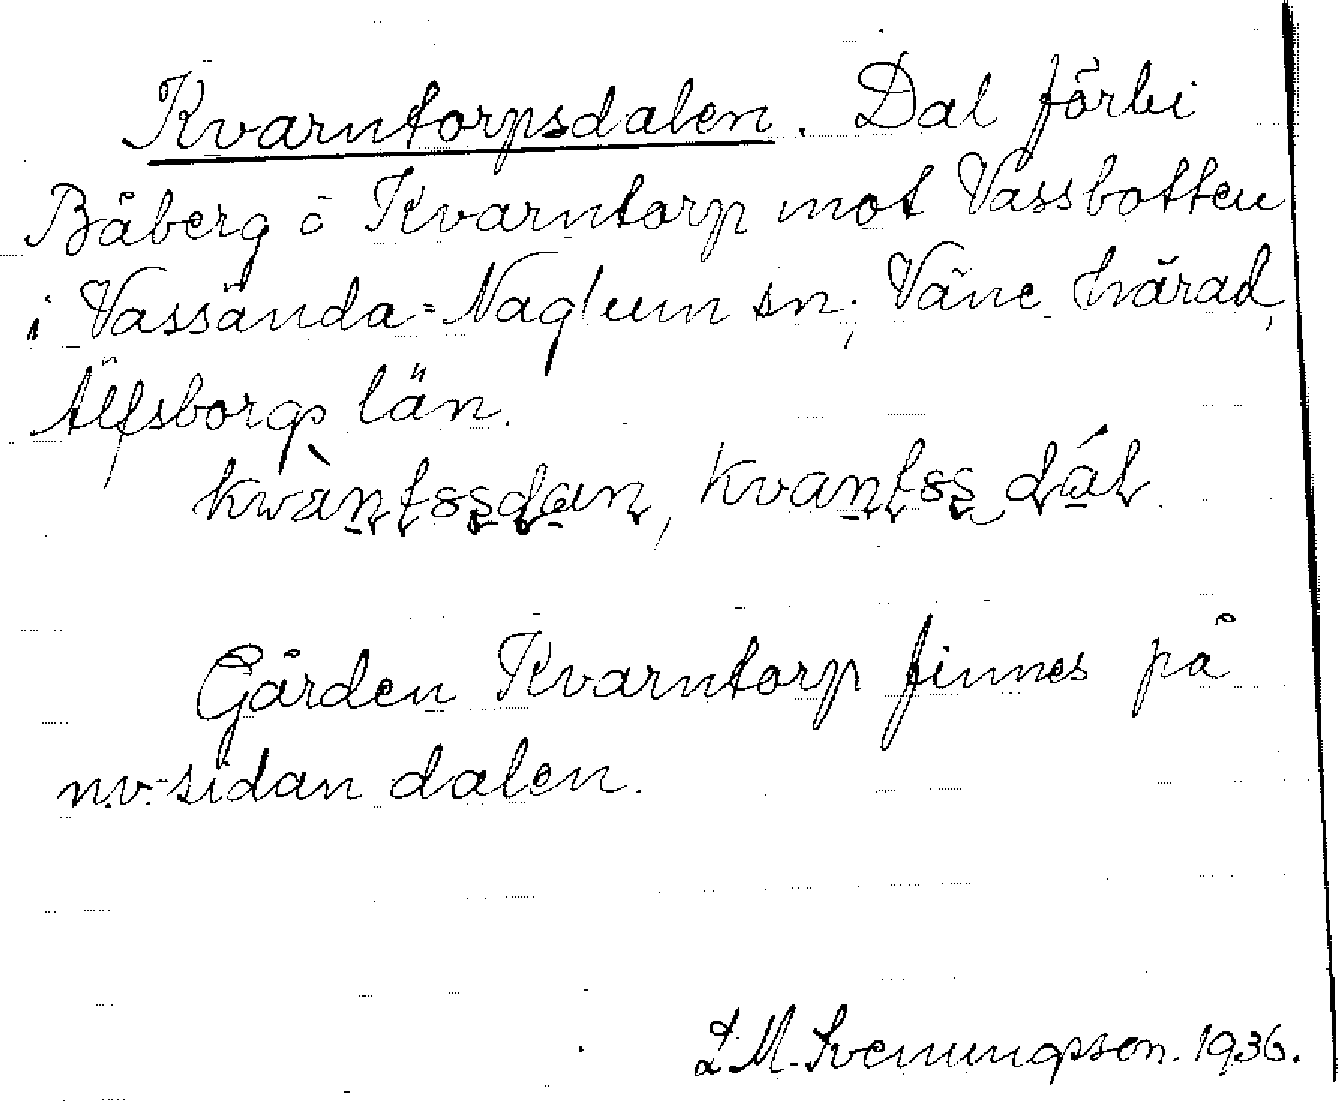 Kvarntorpsdalen. Dal förbi
Båberg o Kvarntorp mot Vassbotten
i Vassända-Naglum sn; Väne härad,
Älfsborgs län.
Gården Kvarntorp finnes på
n.v.-sidan dalen.
L. M. Svenungsson. 1936.